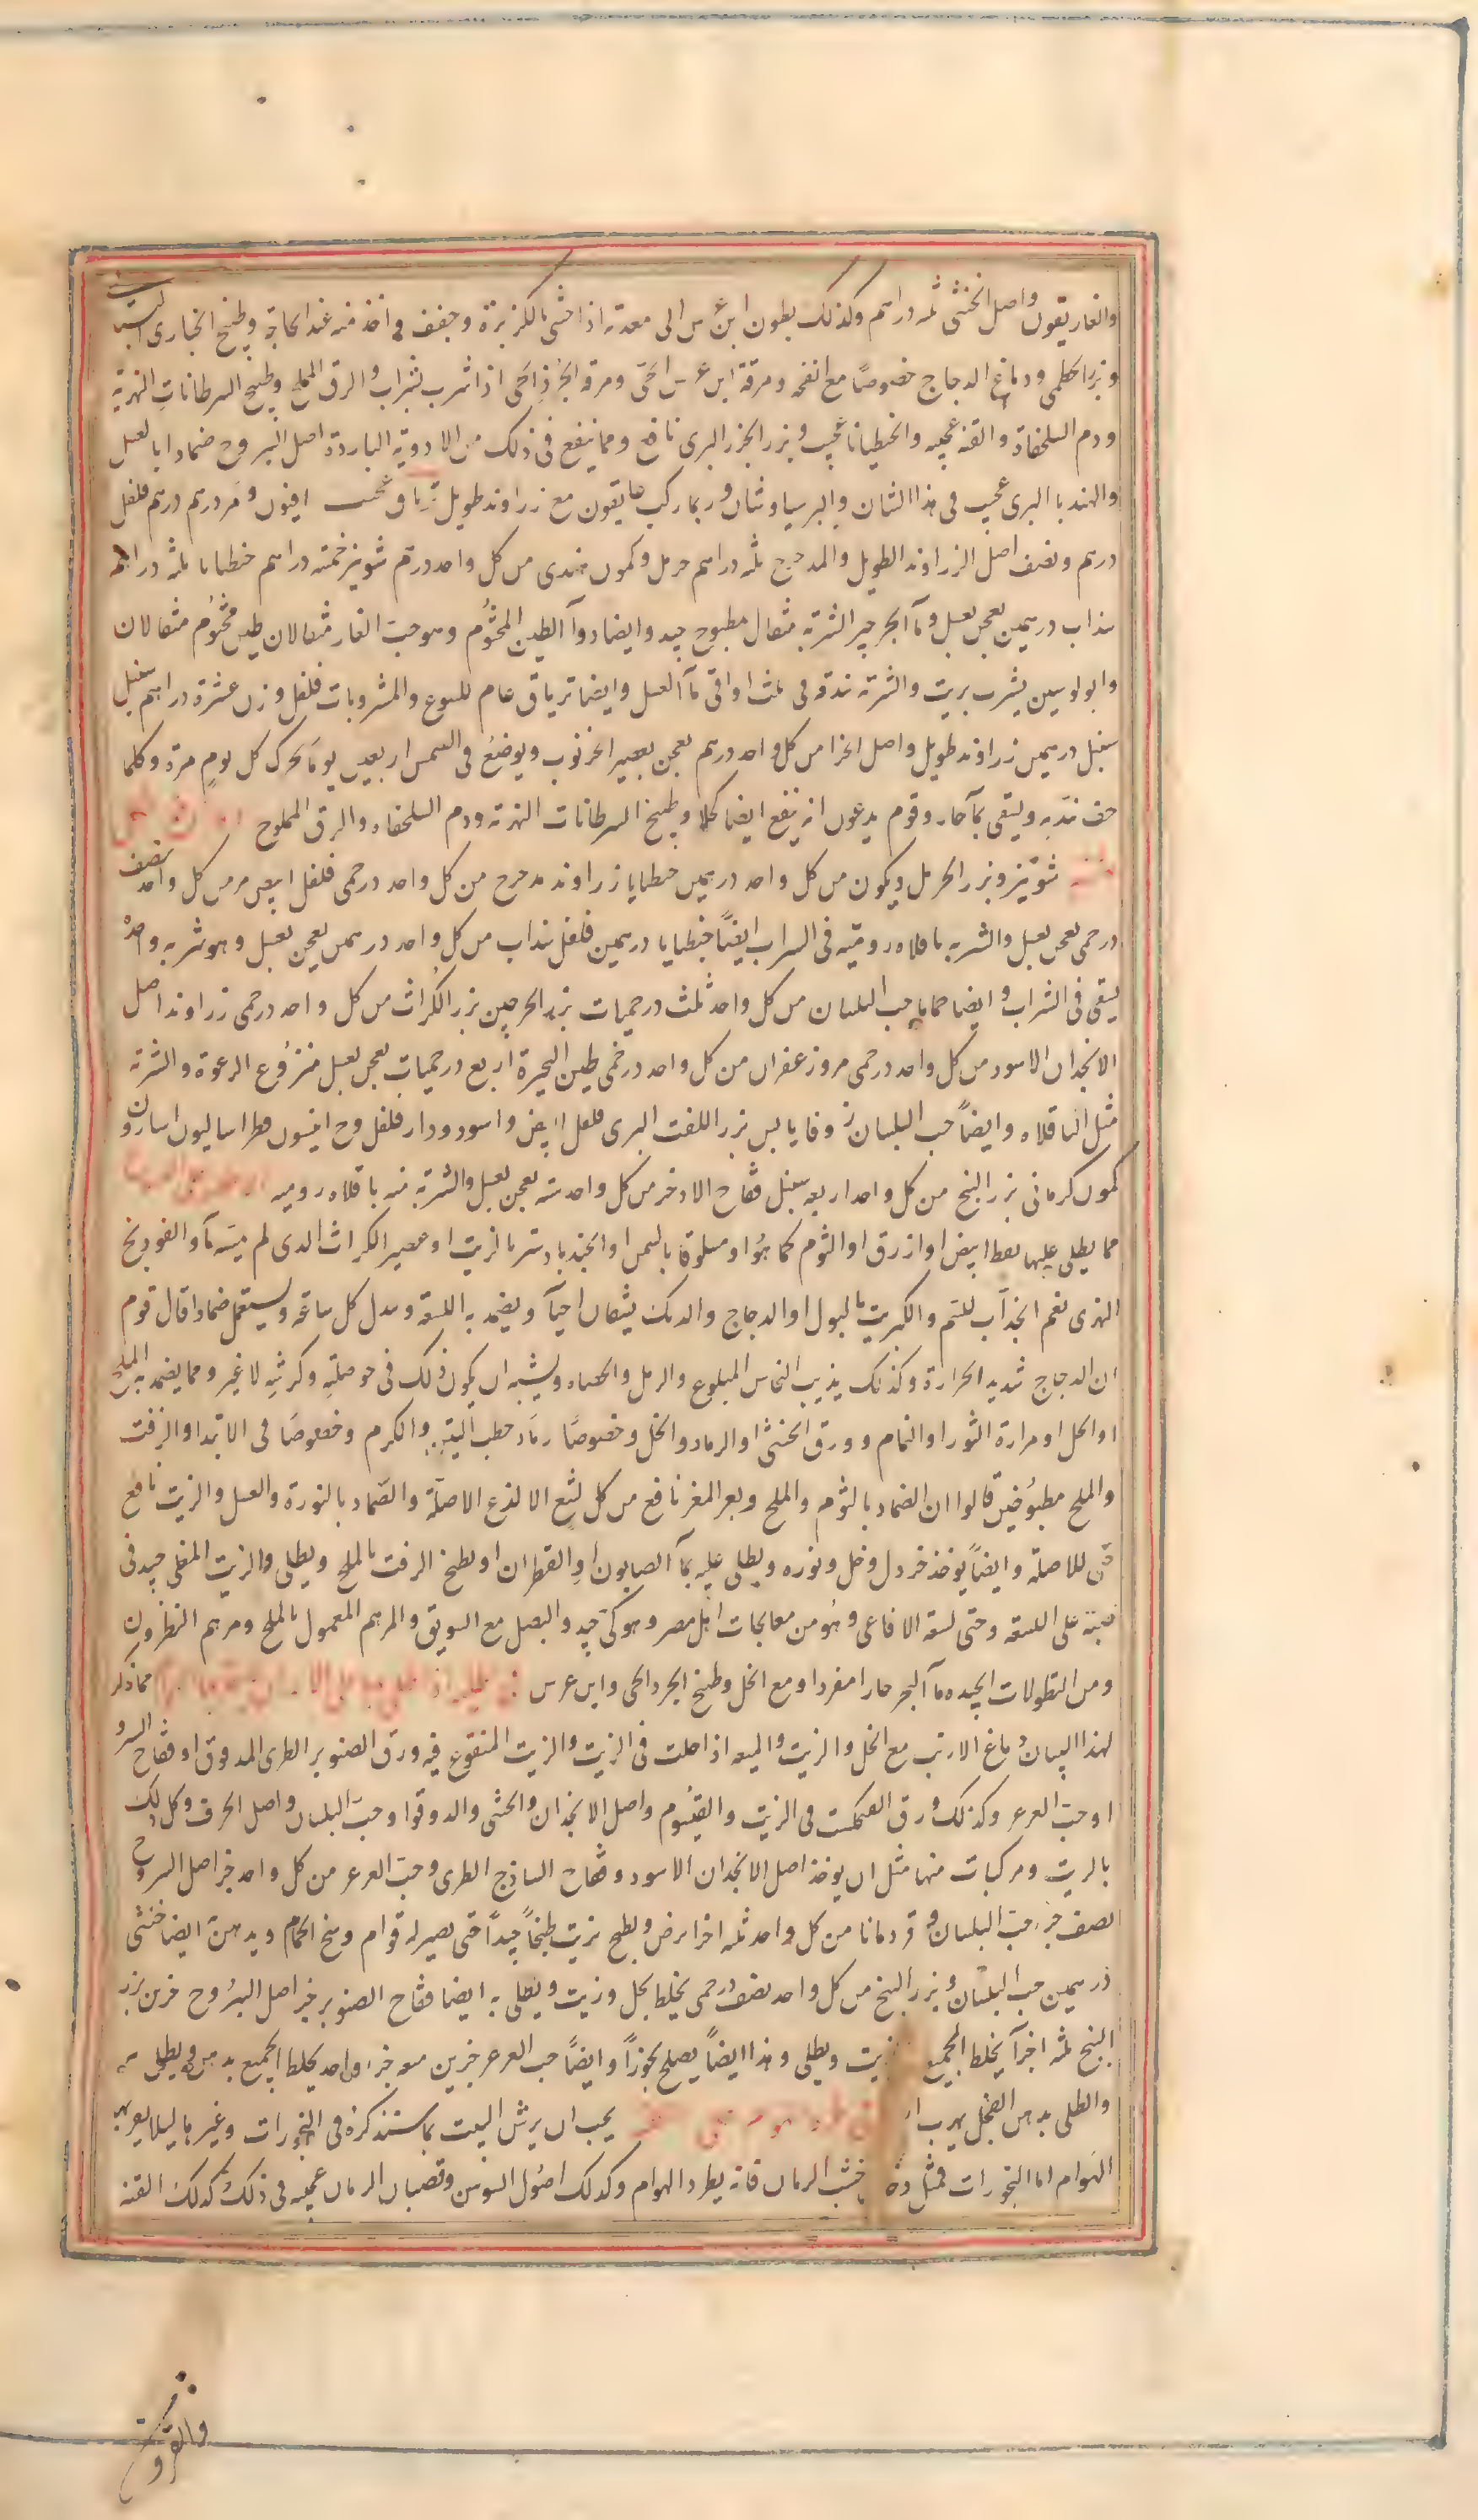 والغاريقون واصل الخنثى ثلثه دراهم وكذلك بطون ابن عرس الى معدته اذا حشى بالكزبرة وجفف واخذ منه عند الحاجة وطبخ الخبازى
وبزر الخطمى ودماغ الدجاج خصوصًا مع انفحه ومرقة ابن عرس الحى ومرقه الجُرذ الحى اذا شرب بشراب والرق المملح وطبخ السرطانات النهرية
ودم السلحفاة والقنه عجيبه والخيطيانا عجيب وبزر الجزر البرى نافع ومما ينفع فى ذلك من الادويه الباردة اصل اليبروح ضمادا بالعسل
والهندبا البرى عجيب فى هذا الشان والبرسياوشان وربما ركب هايقون مع زراوند طويل ترياق عجيب افيون ومر درهم درهم فلفل
درهم ونصف اصل الزراوند الطويل والمدحرج ثلثه دراهم حرمل وكمون هندى من كل واحد درهم شونيز خمسة دراهم خطيانا ثلثه دراهم
سذاب درهمين يعجن بعسل وماء الجرجير الشربة مثقال مطبوح جيد وايضا دواء الطين المختوم وهو حب الغار مثقالان طين مختوم مثقالان
وابولوسين يشرب بزيت والشربه بندقه فى ثلث اواقى ماء العسل وايضا ترياق عام للسوع والمشروبات فلفل وزن عشرة دراهم سنبل
سنبل درهمين زراوند طويل واصل الحزا من كل واحد درهم يعجن بعصير الخرنوب ويوضع فى الشمس اربعين يومًا يحرك كل يوم مرة وكلما
جف نديه ويسقى بماء حار وقوم يدعون انه ينفع ايضا كحلا وطبخ السرطانات النهريه ودم السلحفاه والرق المملوح
شونيز وبزر الحرمل ويكون من كل واحد درهمين خطيانا زراوند مدحرج من كل واحد درخمى فلفل ابيض مر من كل واحد نصف
درخمى يعجن بعسل والشربه باقلاه روميه فى الشراب ايضًا خيطيانا درهمين فلفل سذاب من كل واحد درهمين يعجن بعسل وهو شربه واحدة
يسقى فى الشراب وايضا حماما حب البلسان من كل واحد ثلث درخميات بزر الحرجين بزر الكُراث من كل واحد درخمى زراوند اصل
الانجدان الاسود من كل واحد درخمى مر وزعفران من كل واحد درخمى طين البحيرة اربع درخميات يعجن بعسل منزوع الرغوة والشربة
مثل الباقلاه وايضًا حب البلسان زوفا يابس بزر اللفت البرى فلفل ابيض واسود ودار فلفل وج انيسون فطراساليون اسارون
كمون كرمانى بزر البنج من كل واحد اربعه سنبل فقاح الادخر من كل واحد سته يعجن بعسل والشربة منه باقلاه روميه
مما يطلى عليها نفط ابيض او ازرق او الثوم كما هُو او مسلوقا بالسمن او الجندبادستر بالزيت او عصير الكراث الذى لم يمسه ماء والفودنج
النهرى نعم الجذاب للسم والكبريت بالبول او الدجاج والديك يشقان احياء ويضمد به اللسعة ويبدل كل ساعة ويستعمل ضمادا قال قوم
ان الدجاج شديد الحرارة وكذلك يذيب النحاس المبلوع والرمل والحصاه ويشبه ان يكون ذلك فى حوصلته وكرشه لا غير ومما يضمد به الملح
او الخل او مرارة الثور او النمام وورق الخنثى او الرماد والخل وخصوصًا رماد حطب التين والكرم وخصوصًا فى الابتدا او الزفت
والملح مطبوخين قالوا ان الضماد بالثوم والملح وبعر المعز نافع من كل لسع الا لذع الاصله والضماد بالنورة والعسل والزيت نافع
حتى للاصلة وايضًا يوخذ خردل وخل ونوره ويطلى عليه بماء الصابون او القطران او يطبخ الزفت بالملح ويطلى والزيت المغلى جيد فى
صبه على اللسعه وحتى لسعة الافاعى وهُو من معالجات اهل مصر وهو كى جيد والبصل مع السويق والمرهم المعمول بالملح ومرهم النطرون
ومن النطولات الجيده ماء البحر حارا مفردا ومع الخل وطبخ الجرد الحى وابن عرس مما ذكر
لهذا البيان دماغ الارنب مع الخل والزيت والميعه اذا حلت فى الزيت والزيت المنقوع فيه ورق الصنوبر الطرى المدقوق او فقاح السرو
او حب العرعر وكذلك ورق الفنجنكشت فى الزيت والقيسوم واصل الانجدان والخنثى والدوقوا وحب البلسان واصل الحرف وكل ذلك
بالزيت ومركبات منها مثل ان يوخذ اصل الانجدان الاسود وفقاح الساذج الطرى وحب العرعر من كل واحد جز اصل اليبروح
نصف جزء حب البلسان وقردمانا من كل واحد ثلثه اجزا يرض ويطبخ بزيت طبخًا جيدًا حتى يصير له قوام وسخ الحمام ويدهن ايضا خنثى
درهمين حب البلسان وبزر البنج من كل واحد نصف درخمى يخلط بخل وزيت ويطلى به ايضا فقاح الصنوبر جز اصل اليبروح جزين بزر
البنج ثلثه اجزاء يخلط الجميع بزيت ويطلى وهذا ايضًا يصلح بخورًا وايضًا حب العرعر جزين ميعه جزء واحد يخلط الجميع بدهن ويطلى به
والطلى بدهن الفجل يهرب يجب ان يرش البيت بما سنذكرة فى البخورات وغيرها ليلا يقربه
الهوام اما البخورات فمثل خشب الرمان فانه يطرد الهوام وكذلك اصول السوسن وقضبان الرمان عجيبه فى ذلك وكذلك القنه